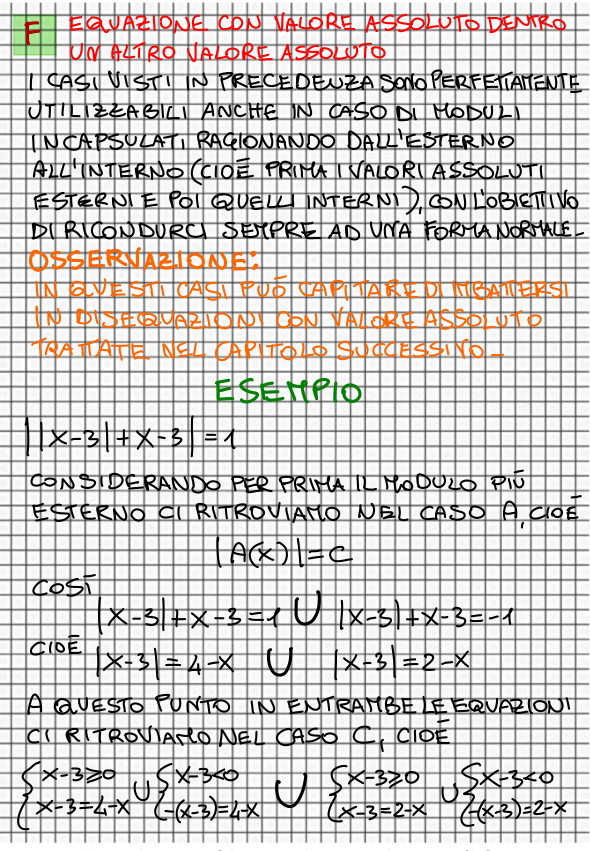 F EQUAZIONE CON VALORE ASSOLUTO DENTRO
UN ALTRO VALORE ASSOLUTO
I CASI VISTI IN PRECEDENZA SONO PERFETTAMENTE
UTILIZZABILI ANCHE IN CASO DI MODULI
INCAPSULATI RAGIONANDO DALL'ESTERNO
ALL'INTERNO (CIOÈ PRIMA I VALORI ASSOLUTI
ESTERNI E POI QUELLI INTERNI), CON L'OBIETTIVO
DI RICONDURCI SEMPRE AD UNA FORMA NORMALE.
OSSERVAZIONE:
IN QUESTI CASI PUÒ CAPITARE DI IMBATTERSI
IN DISEQUAZIONI CON VALORE ASSOLUTO
TRATTATE NEL CAPITOLO SUCCESSIVO.
ESEMPIO
||x-3|+x-3|=1
CONSIDERANDO PER PRIMA IL MODULO PIÙ
ESTERNO CI RITROVIAMO NEL CASO A, CIOÈ
|A(x)|=C
COSÌ
|x-3|+x-3=1 ∪ |x-3|+x-3=-1
CIOÈ |x-3|=4-x ∪ |x-3|=2-x
A QUESTO PUNTO IN ENTRAMBE LE EQUAZIONI
CI RITROVIAMO NEL CASO C, CIOÈ
{x-3≥0 ∪ {x-3<0 ∪ {x-3≥0 ∪ {x-3<0
x-3=4-x -(x-3)=4-x x-3=2-x -(x-3)=2-x